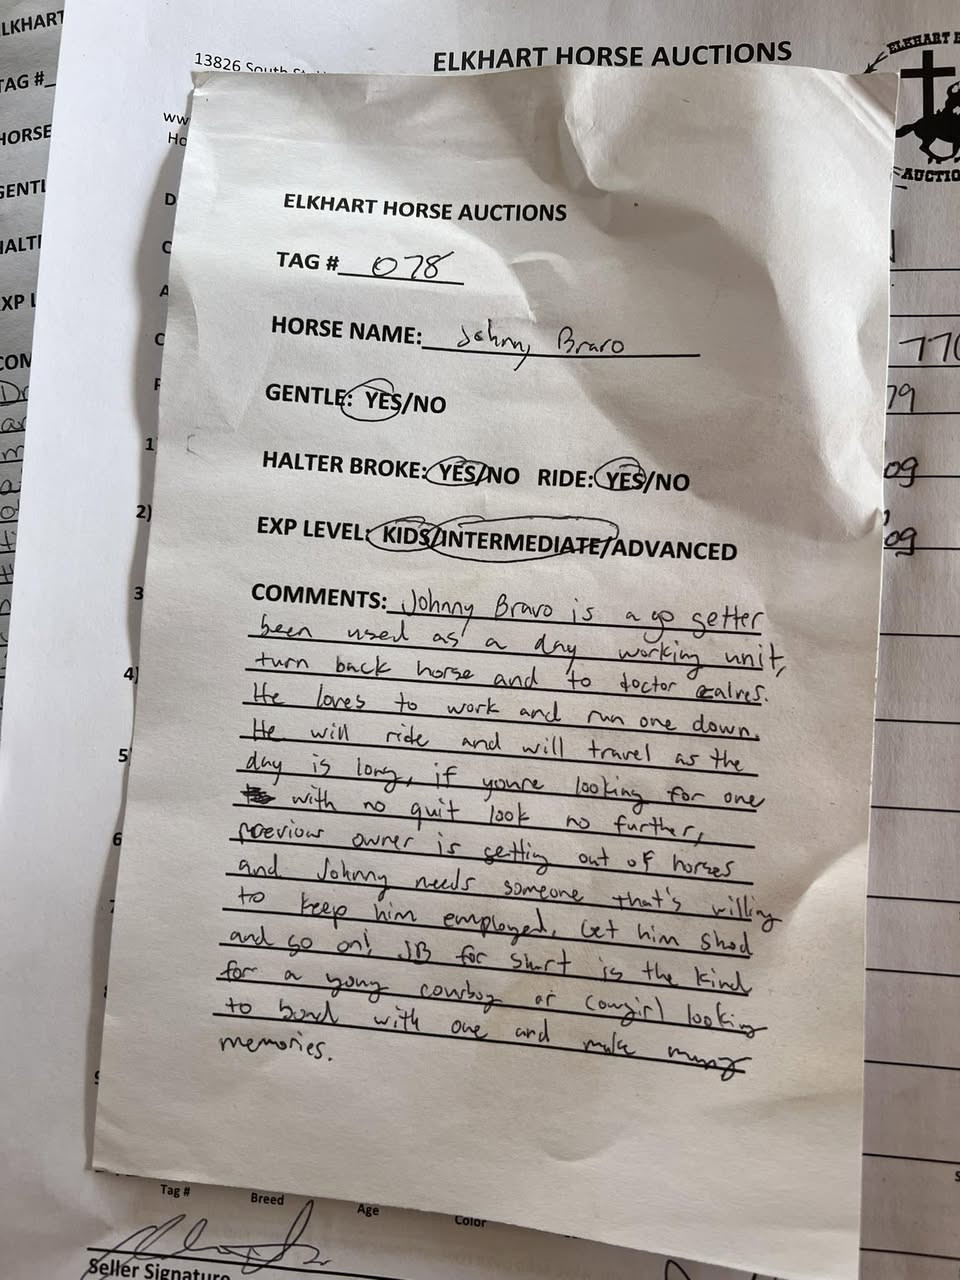 LKHART
TAG #_
HORSE
GENTL
HALT
EXP L
COM
13826 South St
ELKHART HORSE AUCTIONS
ELKHART
AUCTIO
ww
Ho
ELKHART HORSE AUCTIONS
TAG # 078
HORSE NAME: Johnny Bravo
GENTLE: YES/NO
HALTER BROKE: YES/NO RIDE: YES/NO
EXP LEVEL: KIDS/INTERMEDIATE/ADVANCED
COMMENTS: Johnny Bravo is a go getter
been used as a day working unit,
turn back horse and to doctor calves.
He loves to work and run one down.
He will ride and will travel as the
day is long, if youre looking for one
with no quit look no further,
previous owner is getting out of horses
and Johnny needs someone that's willing
to keep him employed. Get him shod
and go on! JB for short is the kind
for a young cowboy or cowgirl looking
to bond with one and make
memories.
770
79
09
09
1
2)
3
4)
5
6
Tag #
Breed
Age
Color
Seller Signature